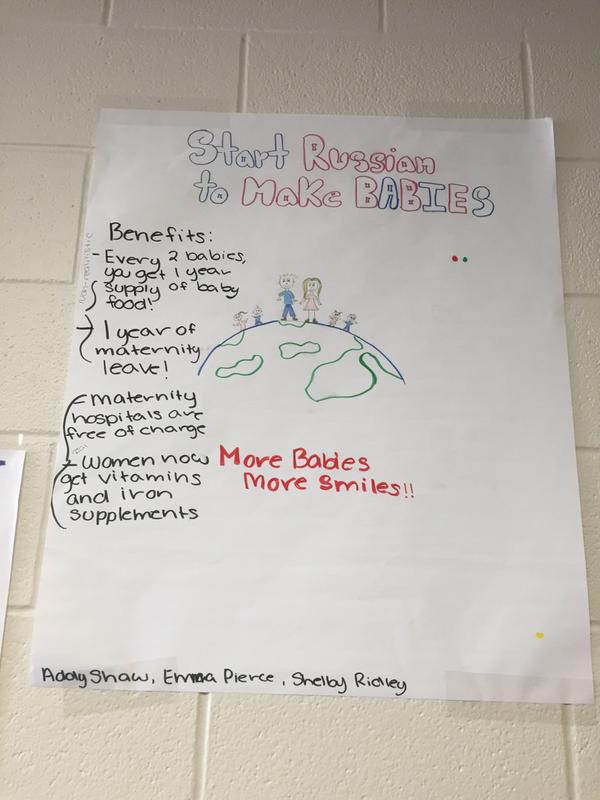 Start Russian
to Make BABIES
Benefits:
- Every 2 babies,
you get 1 year
supply of baby
food!
- 1 year of
maternity
leave!
- maternity
hospitals are
free of charge
- Women now
get vitamins
and iron
supplements
More Babies
More Smiles!!
Addy Shaw, Emma Pierce, Shelby Ridley